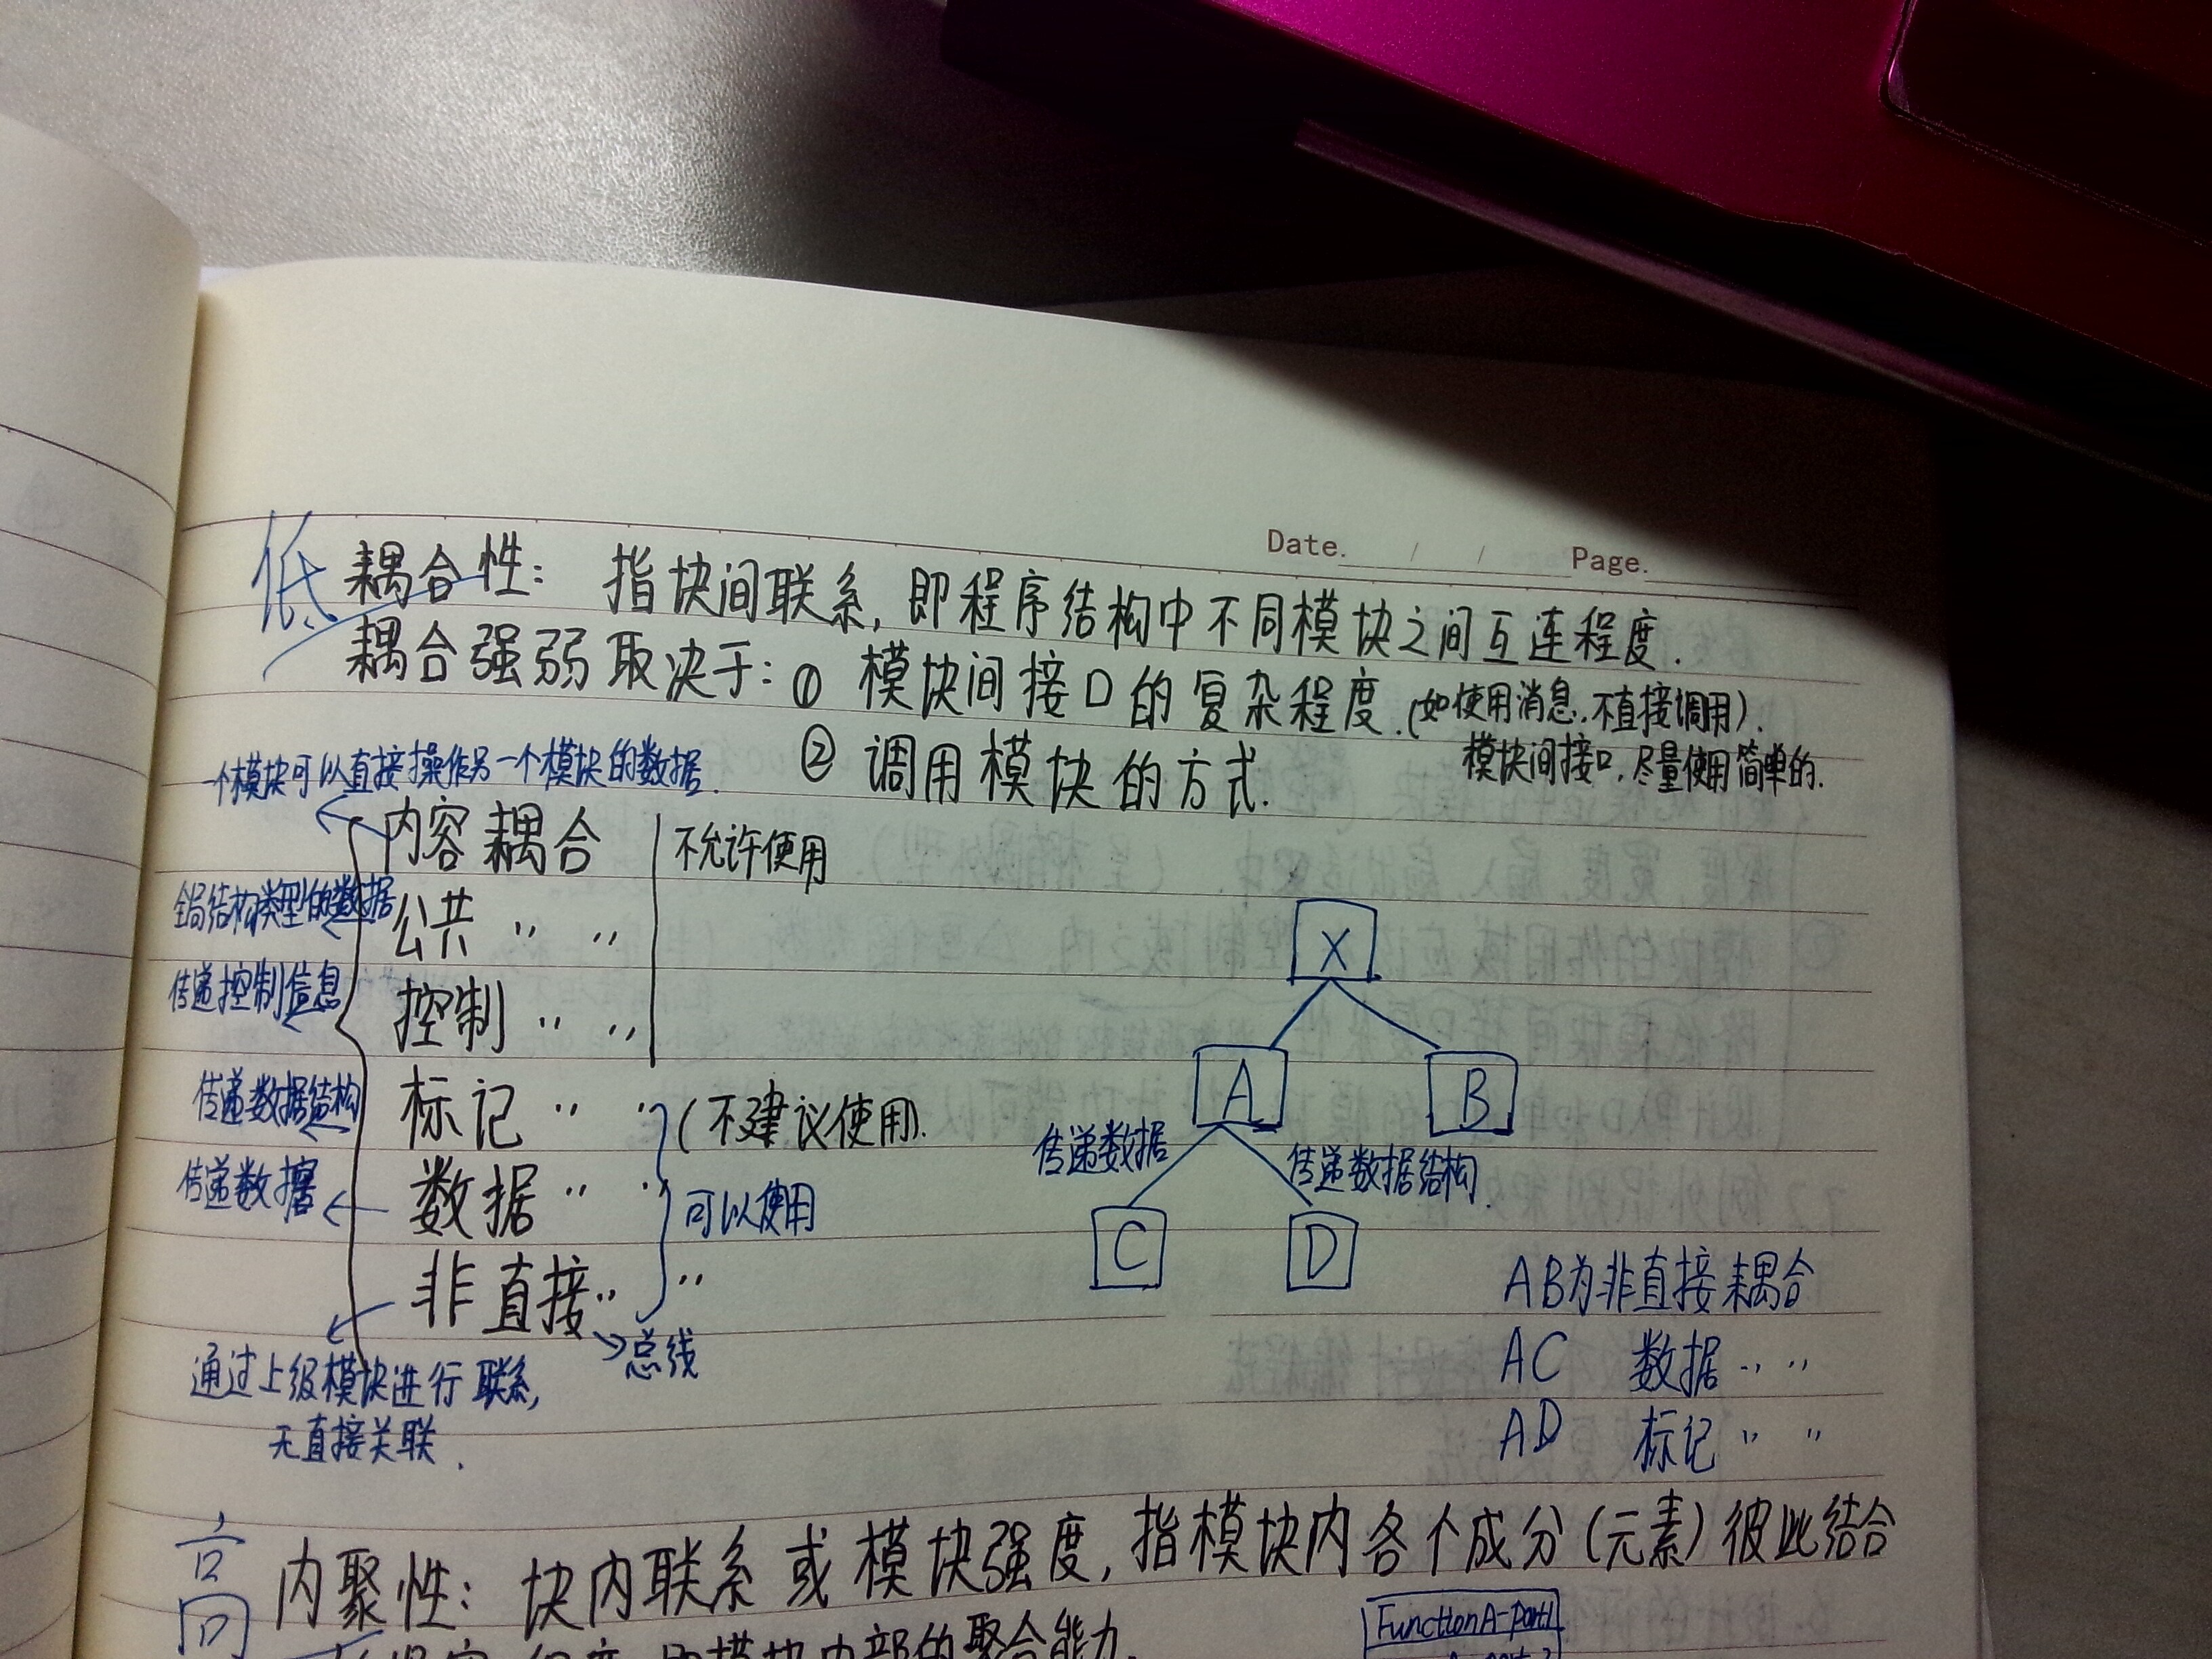 Date. / / Page.
低 耦合性: 指块间联系, 即程序结构中不同模块之间互连程度.
耦合强弱取决于: ① 模块间接口的复杂程度. (如使用消息, 不直接调用).
② 调用模块的方式.
模块间接口, 尽量使用简单的.
一个模块可以直接操作另一个模块的数据.
内容耦合 不允许使用
全局结构类型的数据 公共 〃 〃
传递控制信息 控制 〃 〃
传递数据结构 标记 〃 〃 (不建议使用).
传递数据 数据 〃 〃 可以使用
非直接 〃 〃
总线
通过上级模块进行联系,
无直接关联.
X
A B
传递数据 传递数据结构.
C D
AB为非直接耦合
AC 数据 〃 〃
AD 标记 〃 〃
高 内聚性: 块内联系或模块强度, 指模块内各个成分(元素)彼此结合
FunctionA-part1
程度, 即模块内部的聚合能力.